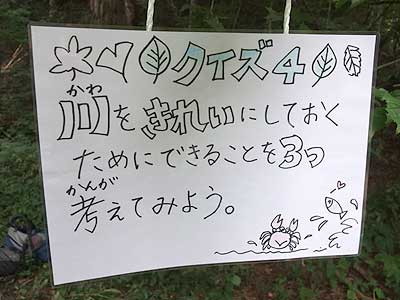 クイズ4
川をきれいにしておく
かわ
ためにできることを3つ
考えてみよう。
かんが